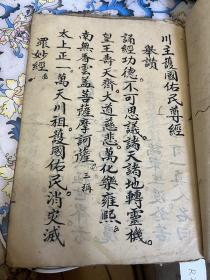 川主護國佑民尊經
舉讚
誦經功德。不可思議。諸天諸地轉靈機。
皇王壽天齊。大道慈悲。萬化樂雍熙。
南無香雲盖菩薩摩訶薩。三稱
太上正一。萬天川祖。護國佑民。消灾滅
罪妙經